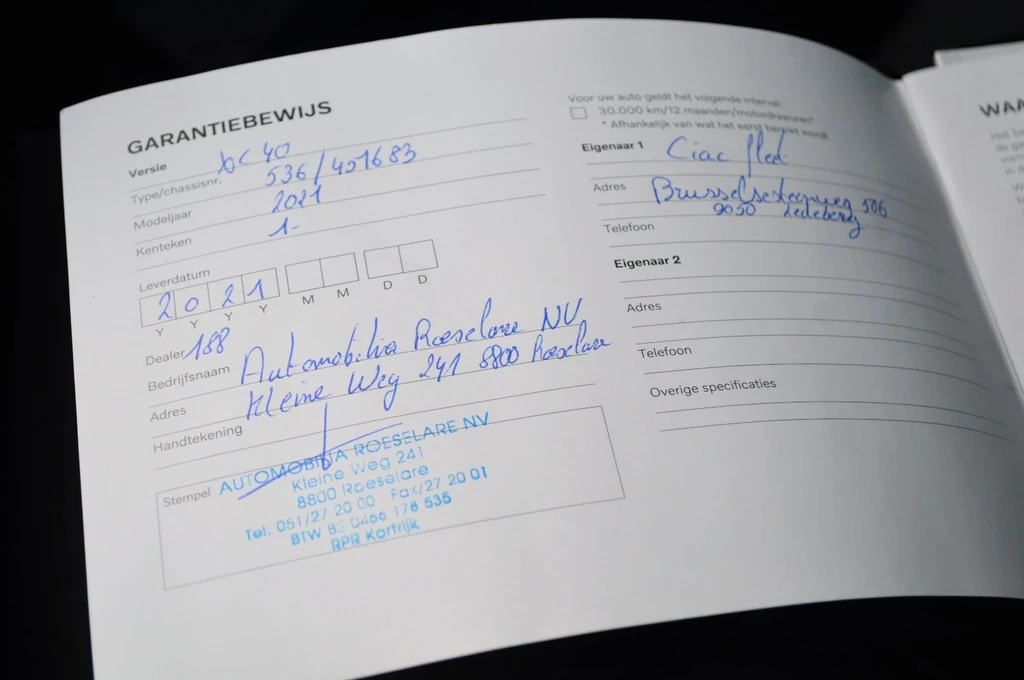 GARANTIEBEWIJS
Versie xc 40
Type/chassisnr. 536/451683
Modeljaar 2021
Kenteken 1-
Leverdatum
2 0 2 1
Y Y Y Y M M D D
Dealer 188
Bedrijfsnaam Automobilia Roeselare NV
Adres Kleine Weg 241 8800 Roeselare
Handtekening
Stempel AUTOMOBILIA ROESELARE NV
Kleine Weg 241
8800 Roeselare
Tel. 051/27 20 00 Fax/27 20 01
BTW BE 0466 178 535
RPR Kortrijk
Voor uw auto geldt het volgende interval:
30.000 km/12 maanden/motordraaiuren*
* Afhankelijk van wat het eerst bereikt wordt
Eigenaar 1 Ciac fleet
Adres Brusselsesteenweg 506
9050 Ledeberg
Telefoon
Eigenaar 2
Adres
Telefoon
Overige specificaties
WAA